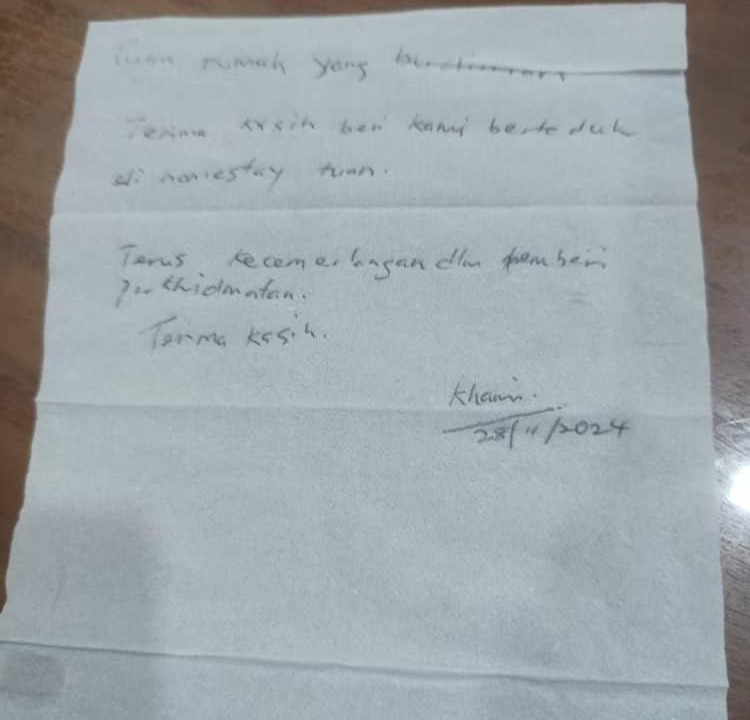 Tuan rumah yang
Terima kasih beri kami berteduh
di homestay tuan.
Terus kecemerlangan dlm pemberi
perkhidmatan.
Terima kasih.
28/11/2024